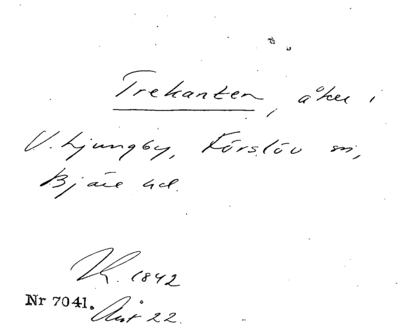 Trekanten, åker i
V. Ljungby, Förslöv sn,
Bjäre hd.
1842
Nr 7041.
22.